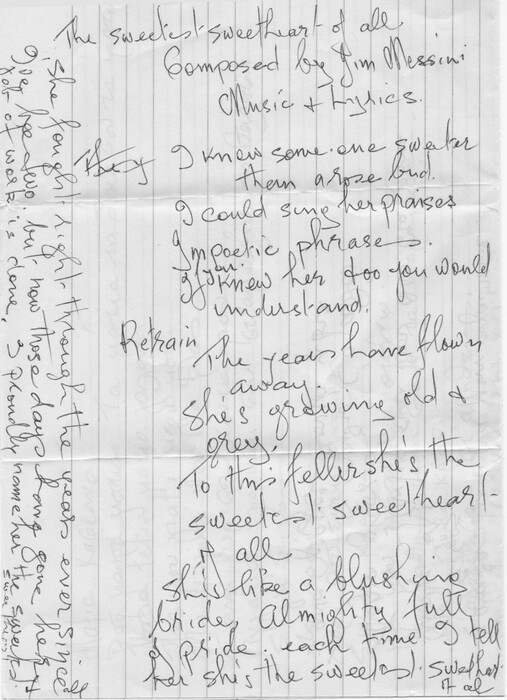 The sweetest sweetheart of all
Composed by Jim Messini
Music + Lyrics.
I know some one sweeter
than a rose bud.
I could sing her praises
In poetic phrases.
If you knew her too you would
understand.
Refrain The years have flown
away.
She's growing old &
grey.
To this feller she's the
sweetest sweetheart
of all
She's like a blushing
bride, Almighty full
of pride. each time I tell
her she's the sweetest sweetheart
of all
She fought right through the years ever since
I've two but now those days long gone her
of work is done. I proudly name her the sweetest
sweetheart of all